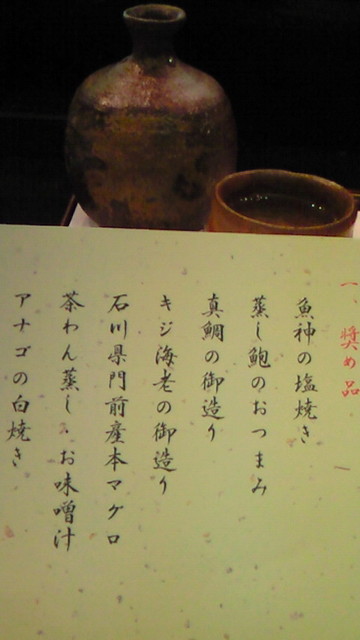 一、奨め品
魚神の塩焼き
蒸し鮑のおつまみ
真鯛の御造り
キジ海老の御造り
石川県門前産本マグロ
茶わん蒸し・お味噌汁
アナゴの白焼き